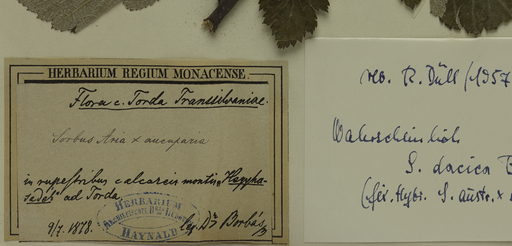 HERBARIUM REGIUM MONACENSE.
Flora c. Torda Transsilvaniae.
Sorbus Aria x aucuparia
in rupestribus calcareis montis „Hazsha-
ad Torda
9/7. 1878. leg. Dr Borbás
HERBARIUM
HAYNALD
rev. R. Düll (1957
Wahrscheinlich
S. dacica B
(fix. Hybr. S. austr. x